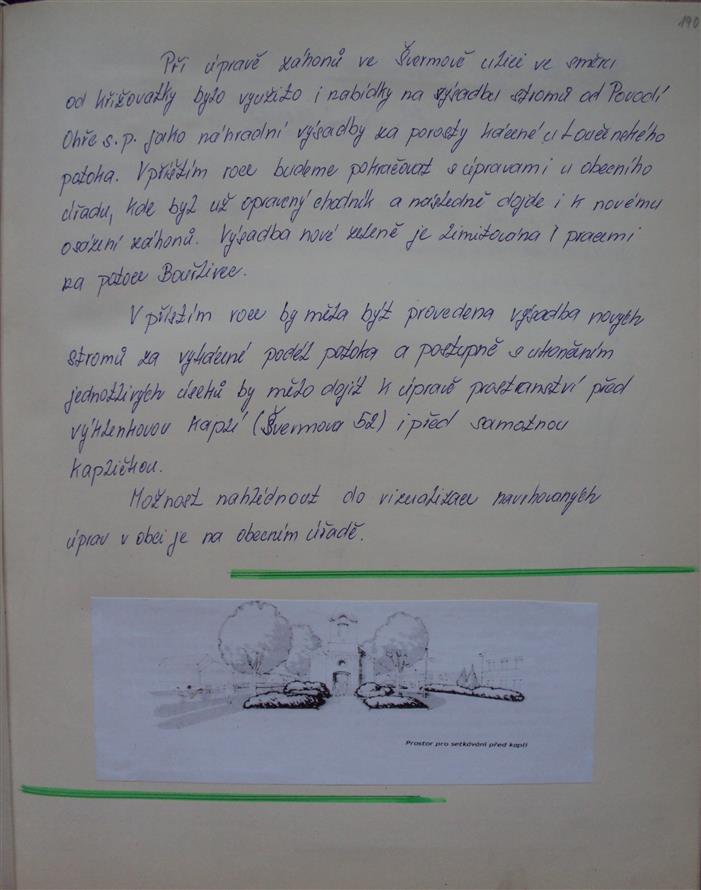 190
Při úpravě záhonů ve Švermově ulici ve směru
od křižovatky bylo využito i nabídky na výsadbu stromů od Povodí
Ohře s.p. jako náhradní výsadby za porosty kácené u Loučenského
potoka. V příštím roce budeme pokračovat s úpravami u obecního
úřadu, kde byl už opravený chodník a následně dojde i k novému
osázení záhonů. Výsadba nové zeleně je limitována i pracemi
na potoce Bouřlivec.
V příštím roce by měla být provedena výsadba nových
stromů za vykácené podél potoka a postupně s ukončením
jednotlivých úseků by mělo dojít k úpravě prostranství před
výklenkovou kaplí (Švermova 52) i před samotnou
kapličkou.
Možnost nahlédnout do vizualizace navrhovaných
úprav v obci je na obecním úřadě.
Prostor pro setkávání před kaplí